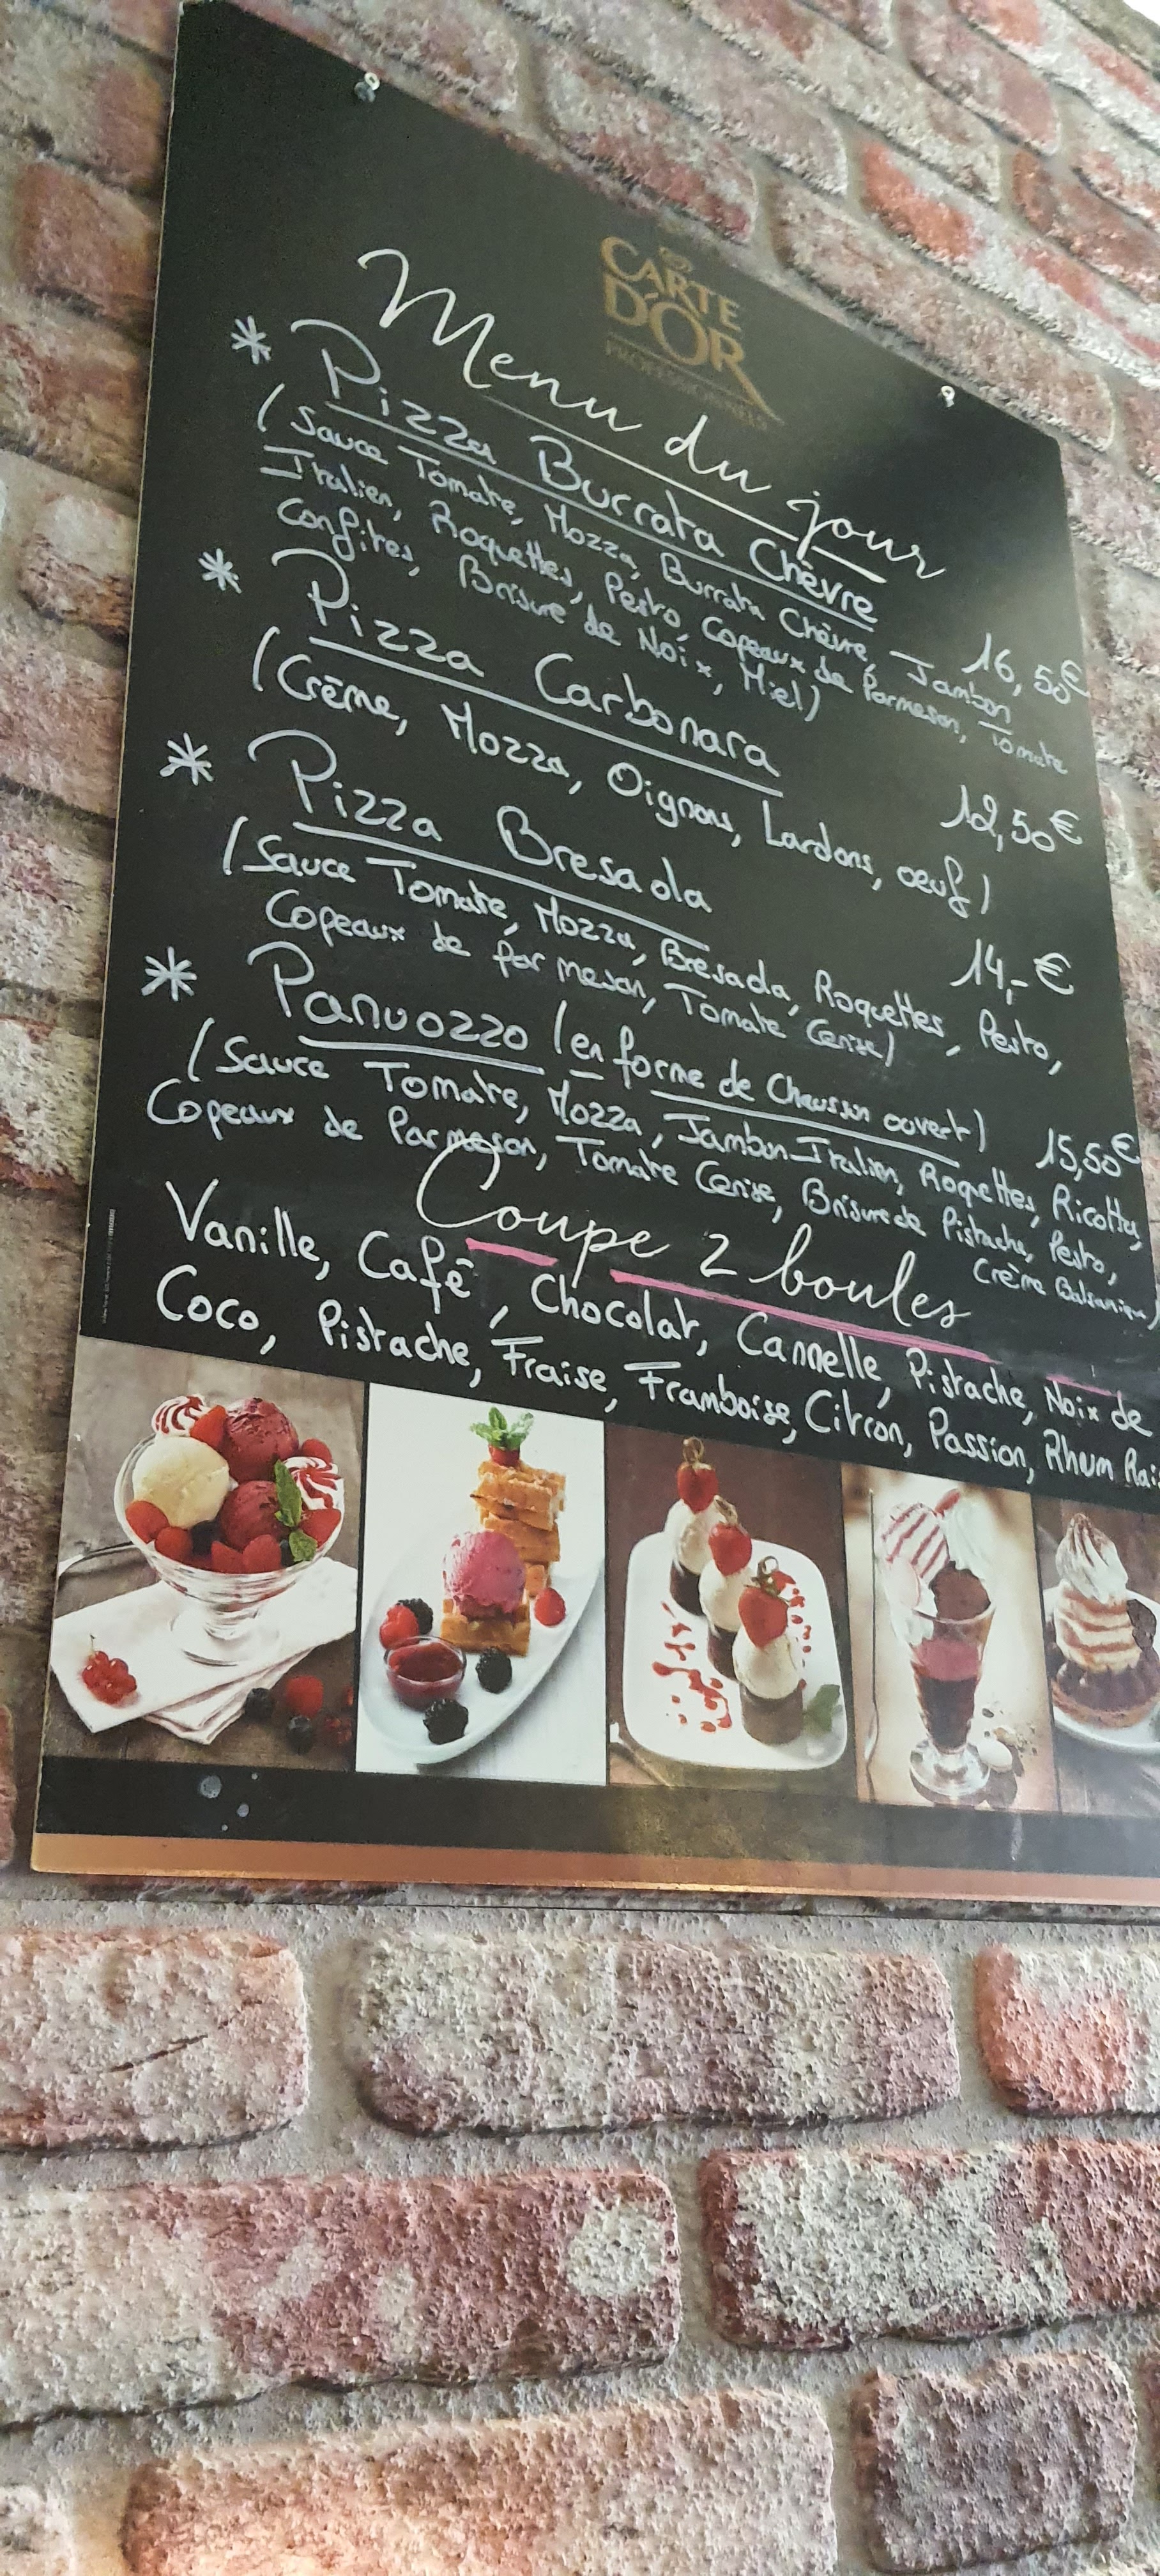 CARTE
D'OR
PROFESSIONNELS
Menu du jour
* Pizza Burrata Chèvre 16,50€
(Sauce Tomate, Mozza, Burrata Chèvre, Jambon
Italien, Roquettes, Pesto, Copeaux de Parmesan, Tomate
Confites, Brisure de Noix, Miel)
* Pizza Carbonara 12,50€
(Crème, Mozza, Oignons, Lardons, oeuf)
* Pizza Bresaola 14,-€
(Sauce Tomate, Mozza, Bresada, Roquettes, Pesto,
Copeaux de parmesan, Tomate Cerise)
* Panuozzo (en forme de Chausson ouvert) 15,50€
(Sauce Tomate, Mozza, Jambon Italien, Roquettes, Ricotta,
Copeaux de Parmesan, Tomate Cerise, Brisure de Pistache, Pesto,
Crème Balsamique)
Coupe 2 boules
Vanille, Café, Chocolat, Cannelle, Pistache, Noix de
Coco, Pistache, Fraise, Framboise, Citron, Passion, Rhum Rais